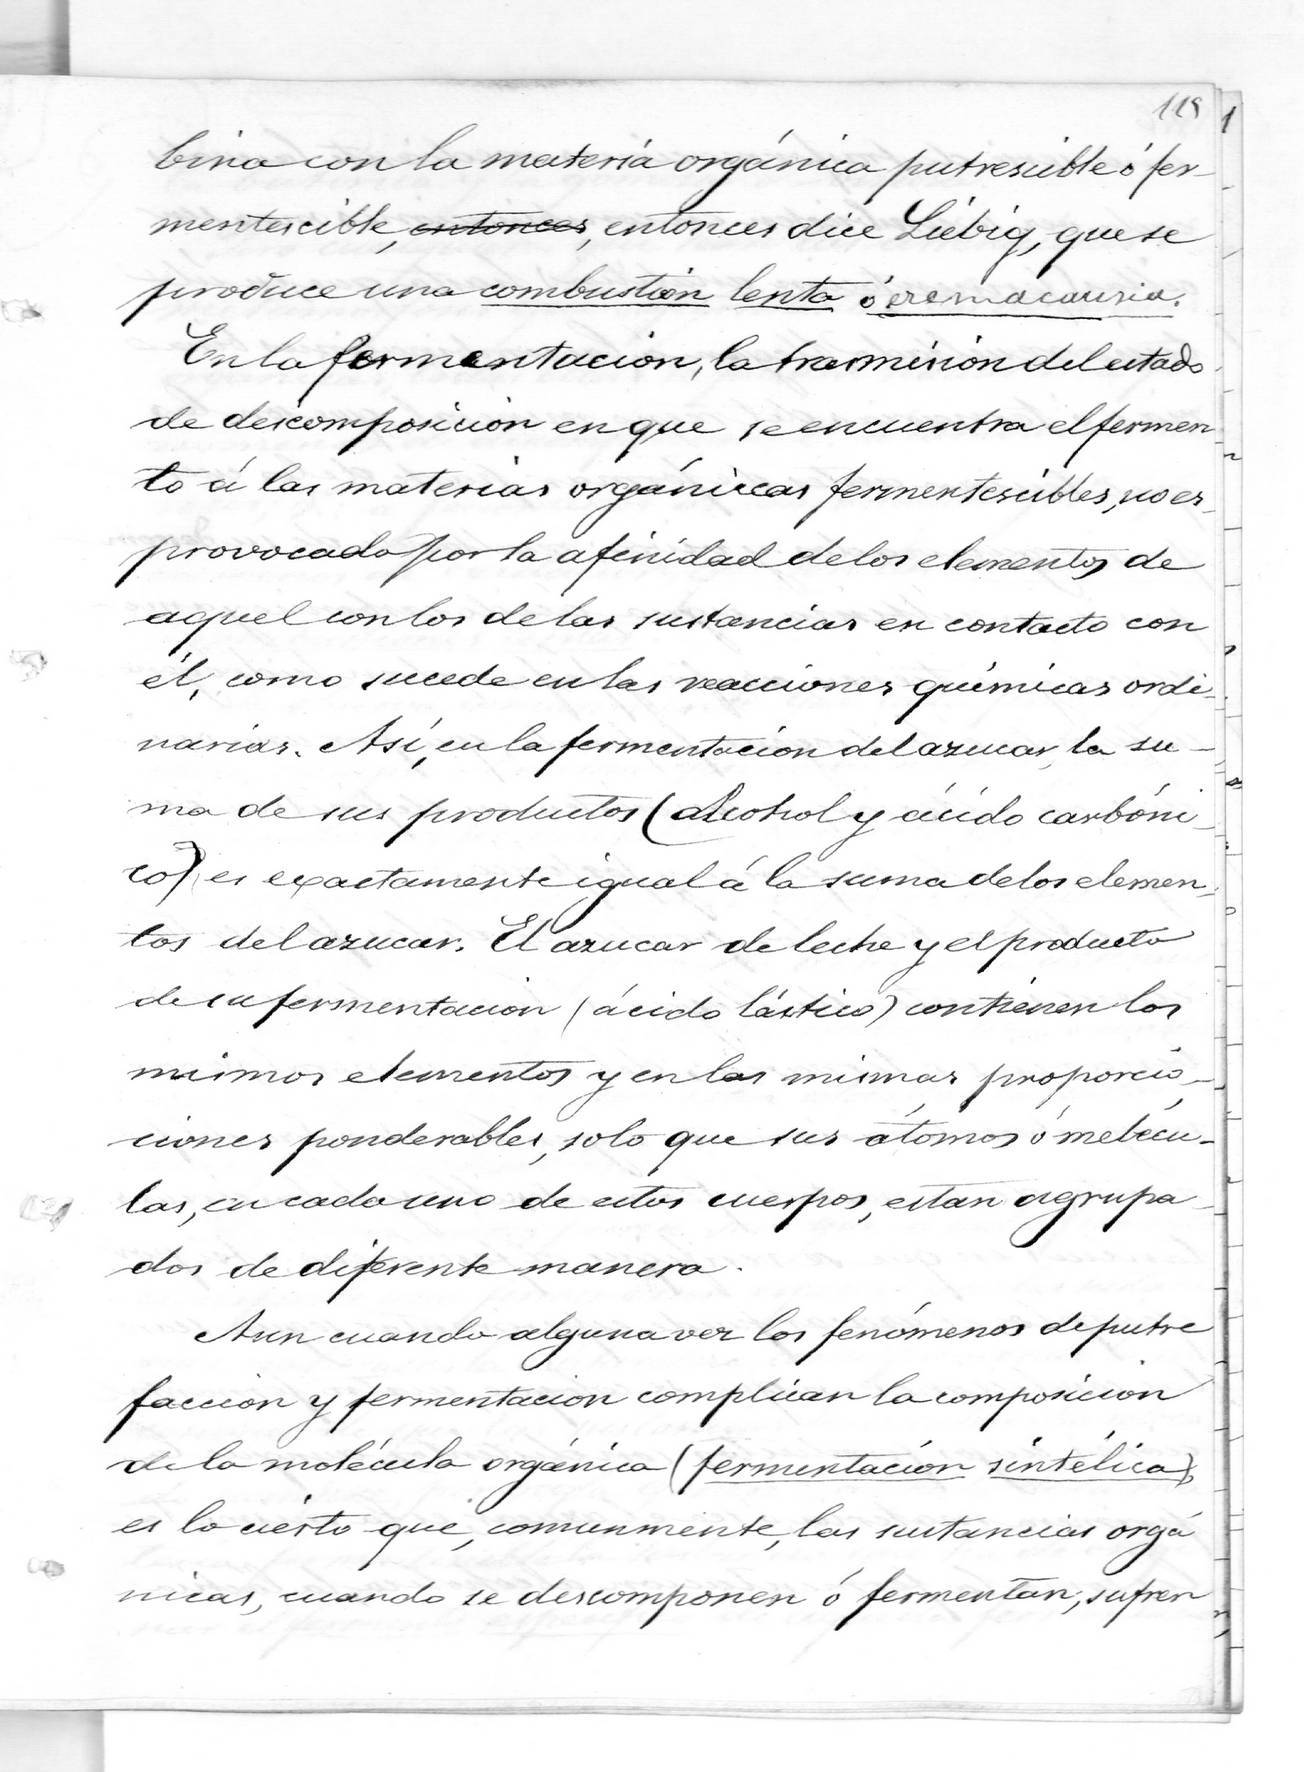 119
bina con la materia orgánica putrescible ó fer-
mentescible, entonces, entonces dice Liebig, que se
produce una combustión lenta ó eremacausia.
En la fermentacion, la trasmisión del estado
de descomposición en que se encuentra el fermen-
to á las materias orgánicas fermentescibles, no es
provocada por la afinidad de los elementos de
aquel con los de las sustancias en contacto con
él, como sucede en las reacciones químicas ordi-
narias. Así, en la fermentación del azucar, la su-
ma de sus productos (alcohol y ácido carbóni-
co) es exactamente igual á la suma de los elemen-
tos del azucar. El azucar de leche y el producto
de su fermentacion (ácido láctico) contienen los
mismos elementos y en las mismas proporcio-
ciones ponderables, solo que sus átomos ó molécu-
las, en cada uno de estos cuerpos, estan agrupa-
dos de diferente manera.
Aun cuando alguna vez los fenómenos de putre
faccion y fermentacion complican la composicion
de la molécula orgánica (fermentación sintética),
es lo cierto que, comunmente, las sustancias orgá
nicas, cuando se descomponen ó fermentan, sufren